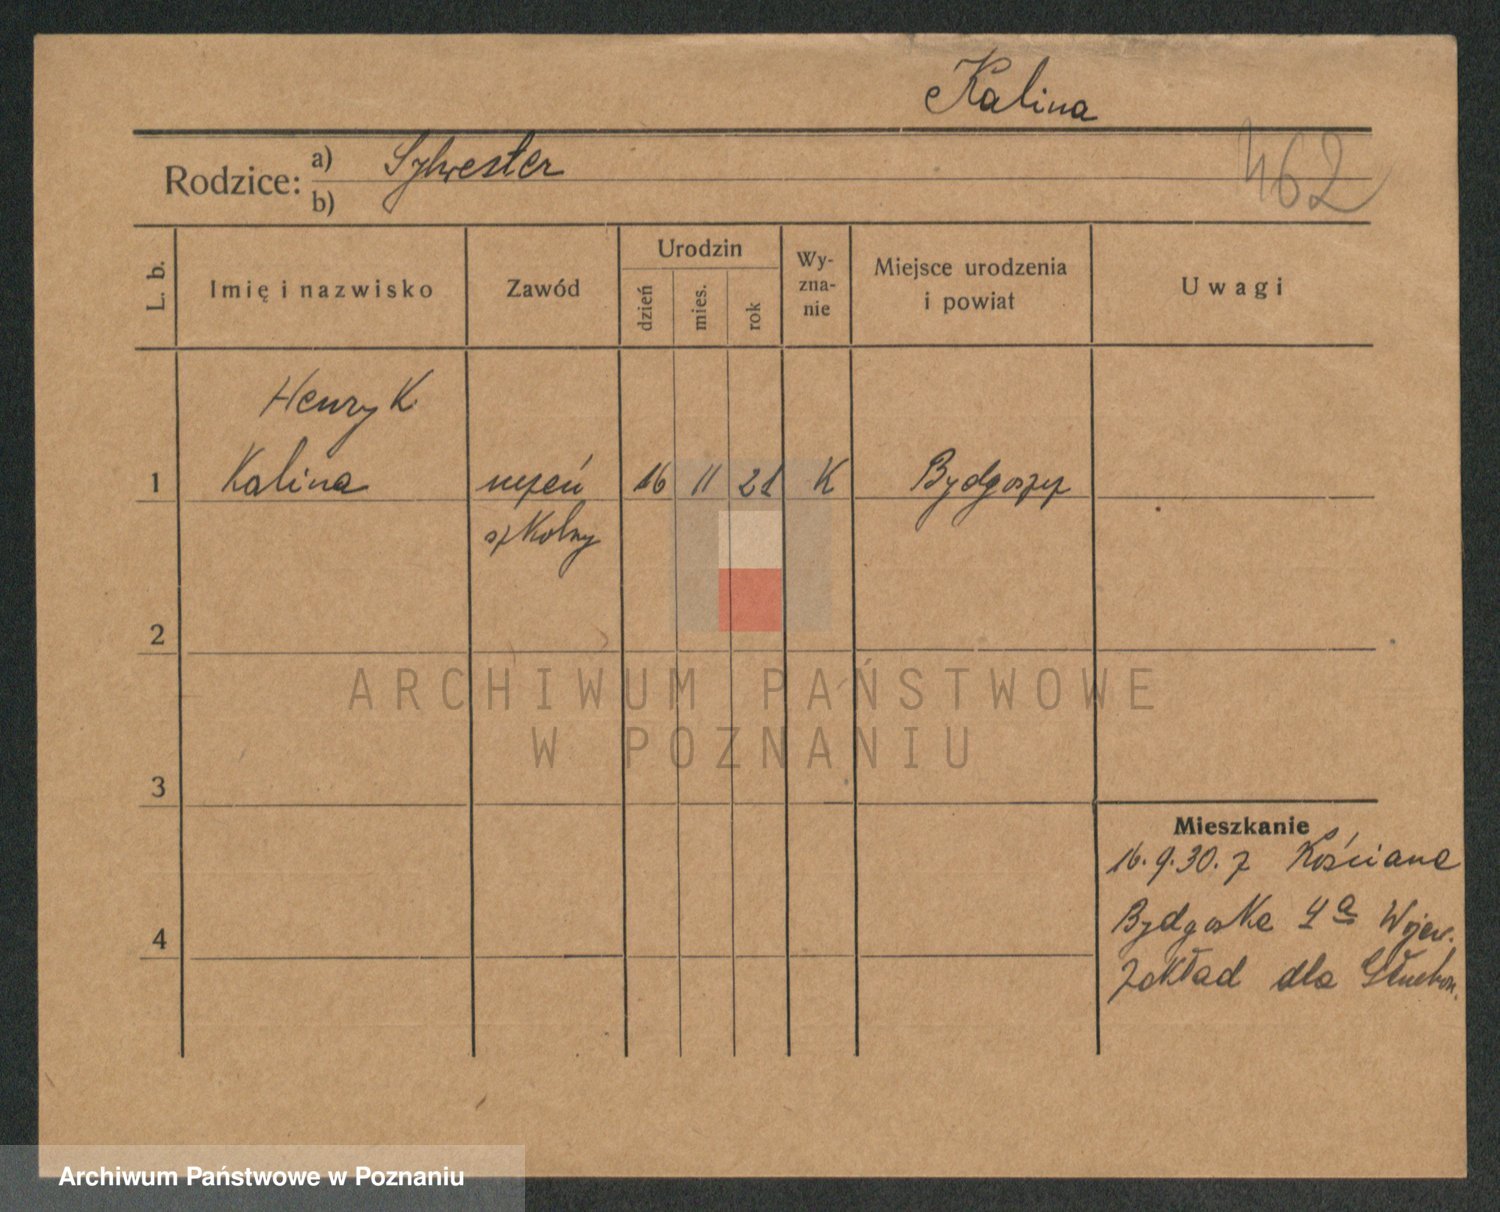 Kalina
Rodzice: a) Sylwester
b)
462
L. b.
Imię i nazwisko
Zawód
Urodzin
dzień
mies.
rok
Wy-
zna-
nie
Miejsce urodzenia
i powiat
Uwagi
Henryk
1 Kalina uczeń 16 11 21 K Bydgoszcz
szkolny
2
ARCHIWUM PAŃSTWOWE
W POZNANIU
3
Mieszkanie
16.9.30. z Kościana
Bydgoska 4a Wojew.
4
Zakład dla Głuchon.
Archiwum Państwowe w Poznaniu